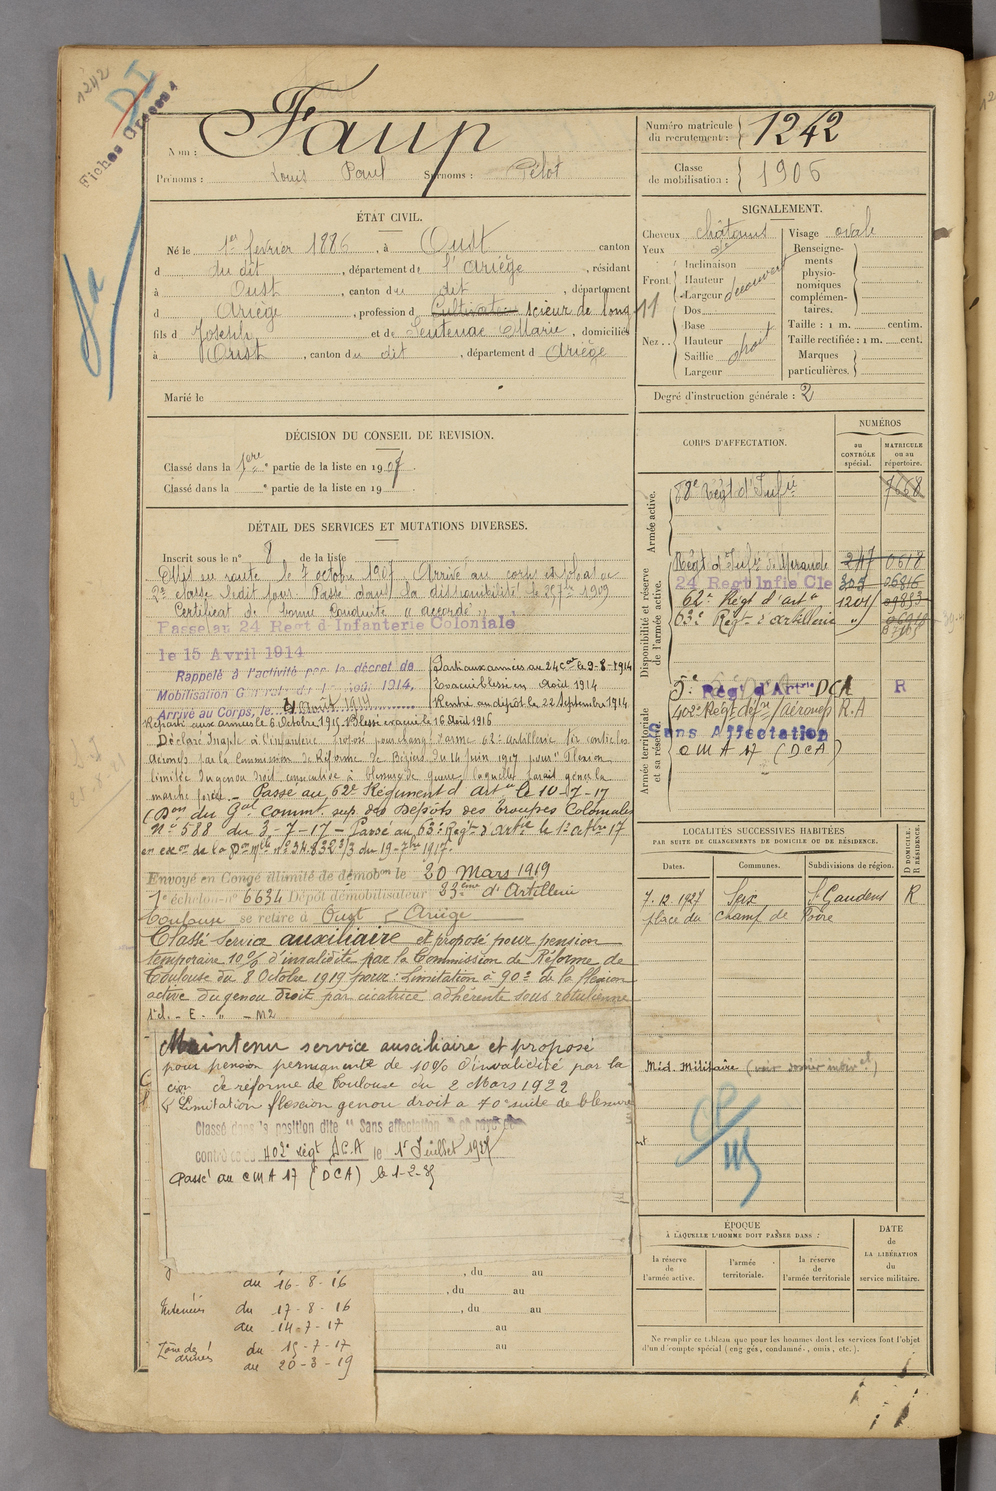 1242
DI
Fiches
Nom : Faup
Prénoms : Louis Paul Surnoms : Pélot
Numéro matricule du recrutement : 1242
Classe de mobilisation : 1906
ÉTAT CIVIL.
Né le 1er février 1886, à Oust canton
d du dit, département de l'Ariège, résidant
à Oust, canton du dit, département
d Ariège, profession d Cultivateur scieur de long
fils d Joseph et de Sentenac Marie, domiciliés
à Oust, canton du dit, département d Ariège
Marié le
SIGNALEMENT.
Cheveux châtains
Yeux
Front
Inclinaison
Hauteur
Largeur
découvert
Nez
Dos
Base
Hauteur
Saillie
Largeur
Visage ovale
Renseignements physionomiques complémentaires.
Taille : 1 m. centim.
Taille rectifiée : 1 m. cent.
Marques particulières.
Degré d'instruction générale : 2
DÉCISION DU CONSEIL DE REVISION.
Classé dans la 1ère partie de la liste en 1907.
Classé dans la partie de la liste en 19
DÉTAIL DES SERVICES ET MUTATIONS DIVERSES.
Inscrit sous le n° 8 de la liste
Mis en route le 7 octobre 1907. Arrivé au corps et soldat de
2e classe ledit jour. Passé dans la disponibilité le 25 7bre 1909
Certificat de bonne Conduite " accordé "
Passe au 24 Regt d'Infanterie Coloniale
le 15 Avril 1914
Rappelé à l'activité par le décret de
Mobilisation Générale du 1er Août 1914,
Arrivé au Corps, le
Parti aux armées au 24 Cal le 9-8-1914
Evacué blessé en Août 1914
Rentré au dépôt le 22 Septembre 1914
Reparti aux armées le 6 Octobre 1915. Blessé evacué le 16 Août 1916
Déclaré Inapte à l'infanterie
par la Commission de Réforme de Béziers du 14 juin 1917 pour "flexion
limitée du genou droit consécutive à blessure de guerre laquelle parait gêner la
marche forcée. - Passé au 62e Régiment d'artie le 10-7-17
(Don du Gal Commt. sup. des Dépôts des troupes Coloniales
N° 588 du 3-7-17 - Passé au 63e Régt d'Artie le 1e 7bre 17
Envoyé en Congé illimité de démobon le 20 Mars 1919
1e échelon-n° 6634 Dépôt démobilisateur 23ème d'Artillerie
Toulouse se retire à Oust Ariège
Classé Service auxiliaire et proposé pour pension
temporaire 10% d'invalidité par la Commission de Réforme de
Toulouse du 8 Octobre 1919 pour : Limitation à 90° de la flexion
active du genou droit par cicatrice adhérente sous rotulienne
Maintenu service auxiliaire et proposé
pour pension permanente de 10% d'invalidité par la
cion de réforme de Toulouse du 2 Mars 1922
Limitation flexion genou droit a 70° suite de blessure
Classé dans la position dite " Sans affectation "
402e régt DCA le 1er Juillet 1927
Passé au CMA 17 (DCA) le 1-2-35
CORPS D'AFFECTATION.
NUMÉROS
au CONTRÔLE spécial.
MATRICULE ou au répertoire.
Armée active.
88e Régt d'Infie
7668
Disponibilité et réserve de l'armée active.
Régt d'Infie de Mirande 247 0618
24 Regt Infie Cle
62e Régt d'artie 1204
63e Régt d'Artillerie "
Armée territoriale et sa réserve.
Régt d'Artrie DCA R
402e Régt R.A
Sans Affectation
CMA 17 (DCA)
LOCALITÉS SUCCESSIVES HABITÉES
PAR SUITE DE CHANGEMENTS DE DOMICILE OU DE RÉSIDENCE.
Dates. Communes. Subdivisions de région. D DOMICILE. R RÉSIDENCE.
7.12.1927 Seix St Gaudens R
place du champ de foire
Méd. Militaire
ÉPOQUE
À LAQUELLE L'HOMME DOIT PASSER DANS :
la réserve de l'armée active.
l'armée territoriale.
la réserve de l'armée territoriale
DATE de LA LIBÉRATION du service militaire.
Ne remplir ce tableau que pour les hommes dont les services font l'objet
d'un décompte spécial (engagés, condamnés, omis, etc.).
, du au
, du au
, du au
au
au
au 16-8-16
Intérieur du 17-8-16
au 14-7-17
Zone des armées du 15-7-17
au 20-3-19